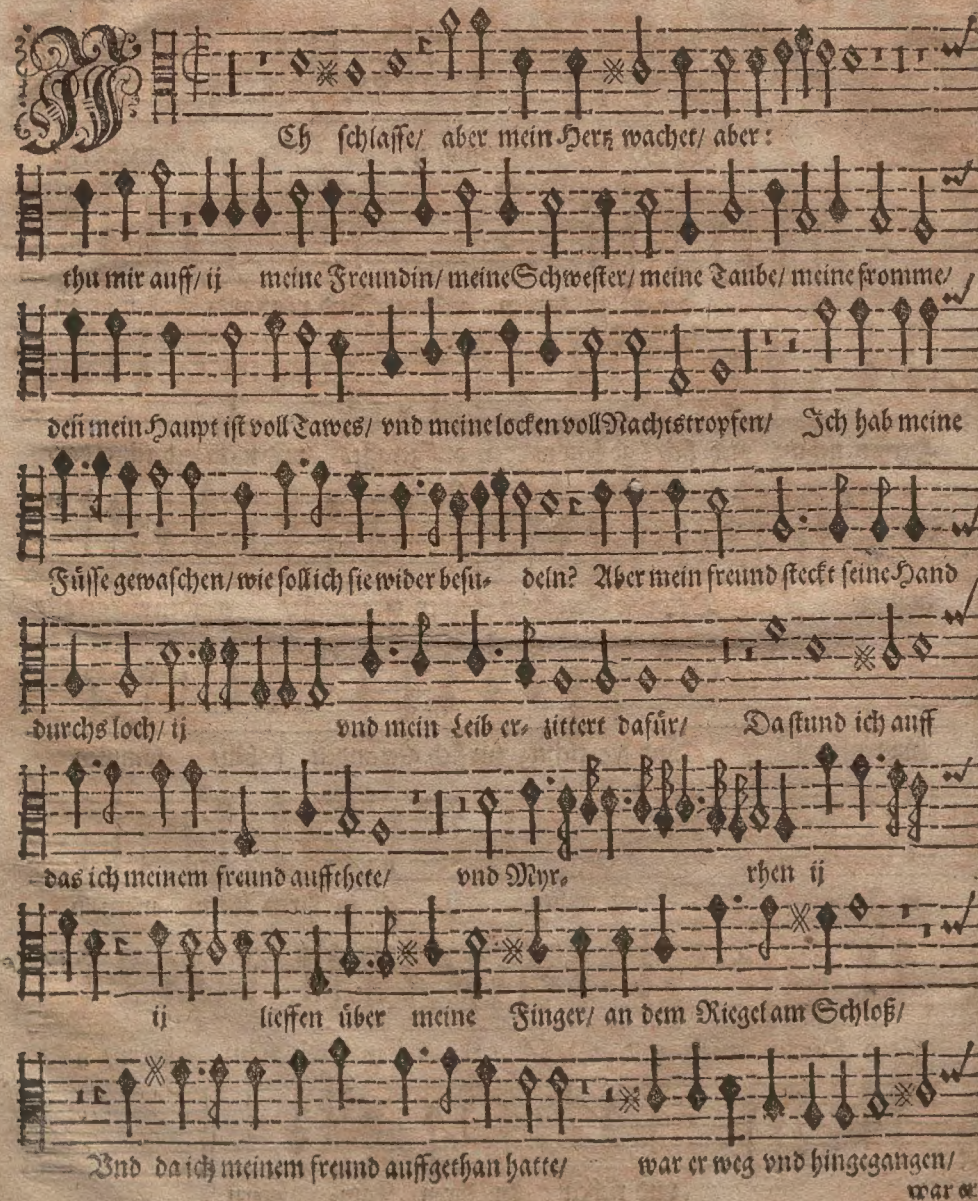 ICh schlaffe/ aber mein Hertz wachet/ aber:
thu mir auff/ ij meine Freundin/ meine Schwester/ meine Taube/ meine fromme/
deñ mein Haupt ist voll Tawes/ vnd meine locken voll Nachtstropfen/ Ich hab meine
Füsse gewaschen/ wie soll ich sie wider besu- deln? Aber mein freund steckt seine Hand
durchs loch/ ij vnd mein Leib er- zittert dafür/ Da stund ich auff
das ich meinem freund auffthete/ vnd Myr- rhen ij
ij lieffen über meine Finger/ an dem Riegel am Schloß/
Vnd da ich meinem freund auffgethan hatte/ war er weg vnd hingegangen/
war er